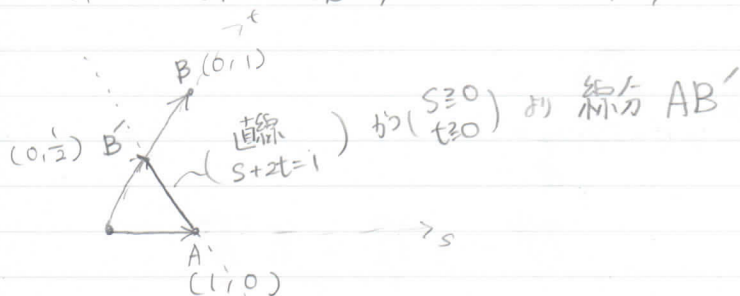 t
B (0,1)
(0,1/2) B′
(直線 s+2t=1) かつ (s≧0 t≧0) より 線分 AB′
s
A
(1,0)